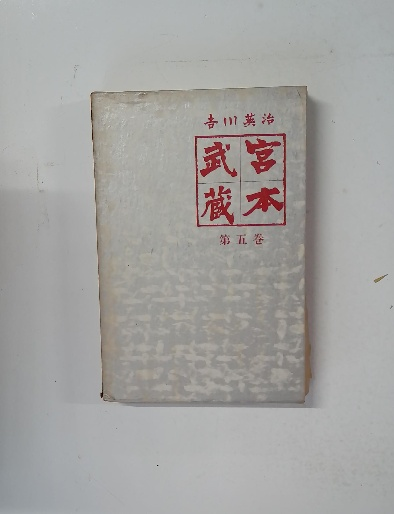 吉川英治
宮本
武蔵
第五巻